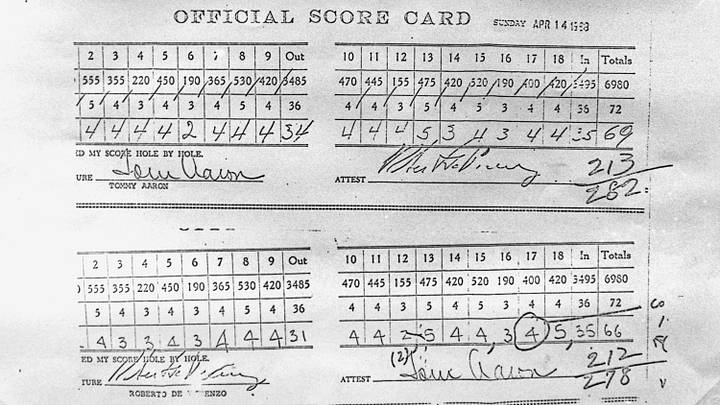 OFFICIAL SCORE CARD SUNDAY APR 14 1968
2 3 4 5 6 7 8 9 Out 10 11 12 13 14 15 16 17 18 In Totals
555 355 220 450 190 365 530 420 3485 470 445 155 475 420 520 190 400 420 3495 6980
5 4 3 4 3 4 5 4 36 4 4 3 5 4 5 3 4 4 36 72
4 4 4 4 2 4 4 4 34 4 4 4 5 3 4 3 4 4 35 69
ED MY SCORE HOLE BY HOLE. 213
URE Tom Aaron ATTEST 282
TOMMY AARON
2 3 4 5 6 7 8 9 Out 10 11 12 13 14 15 16 17 18 In Totals
555 355 220 450 190 365 530 420 3485 470 445 155 475 420 520 190 400 420 3495 6980
5 4 3 4 3 4 5 4 36 4 4 3 5 4 5 3 4 4 36 72
4 3 3 4 3 4 4 4 31 4 4 2 5 4 4 3 4 5 35 66
ED MY SCORE HOLE BY HOLE. (2) 212
TURE ATTEST Tom Aaron 278
ROBERTO DE